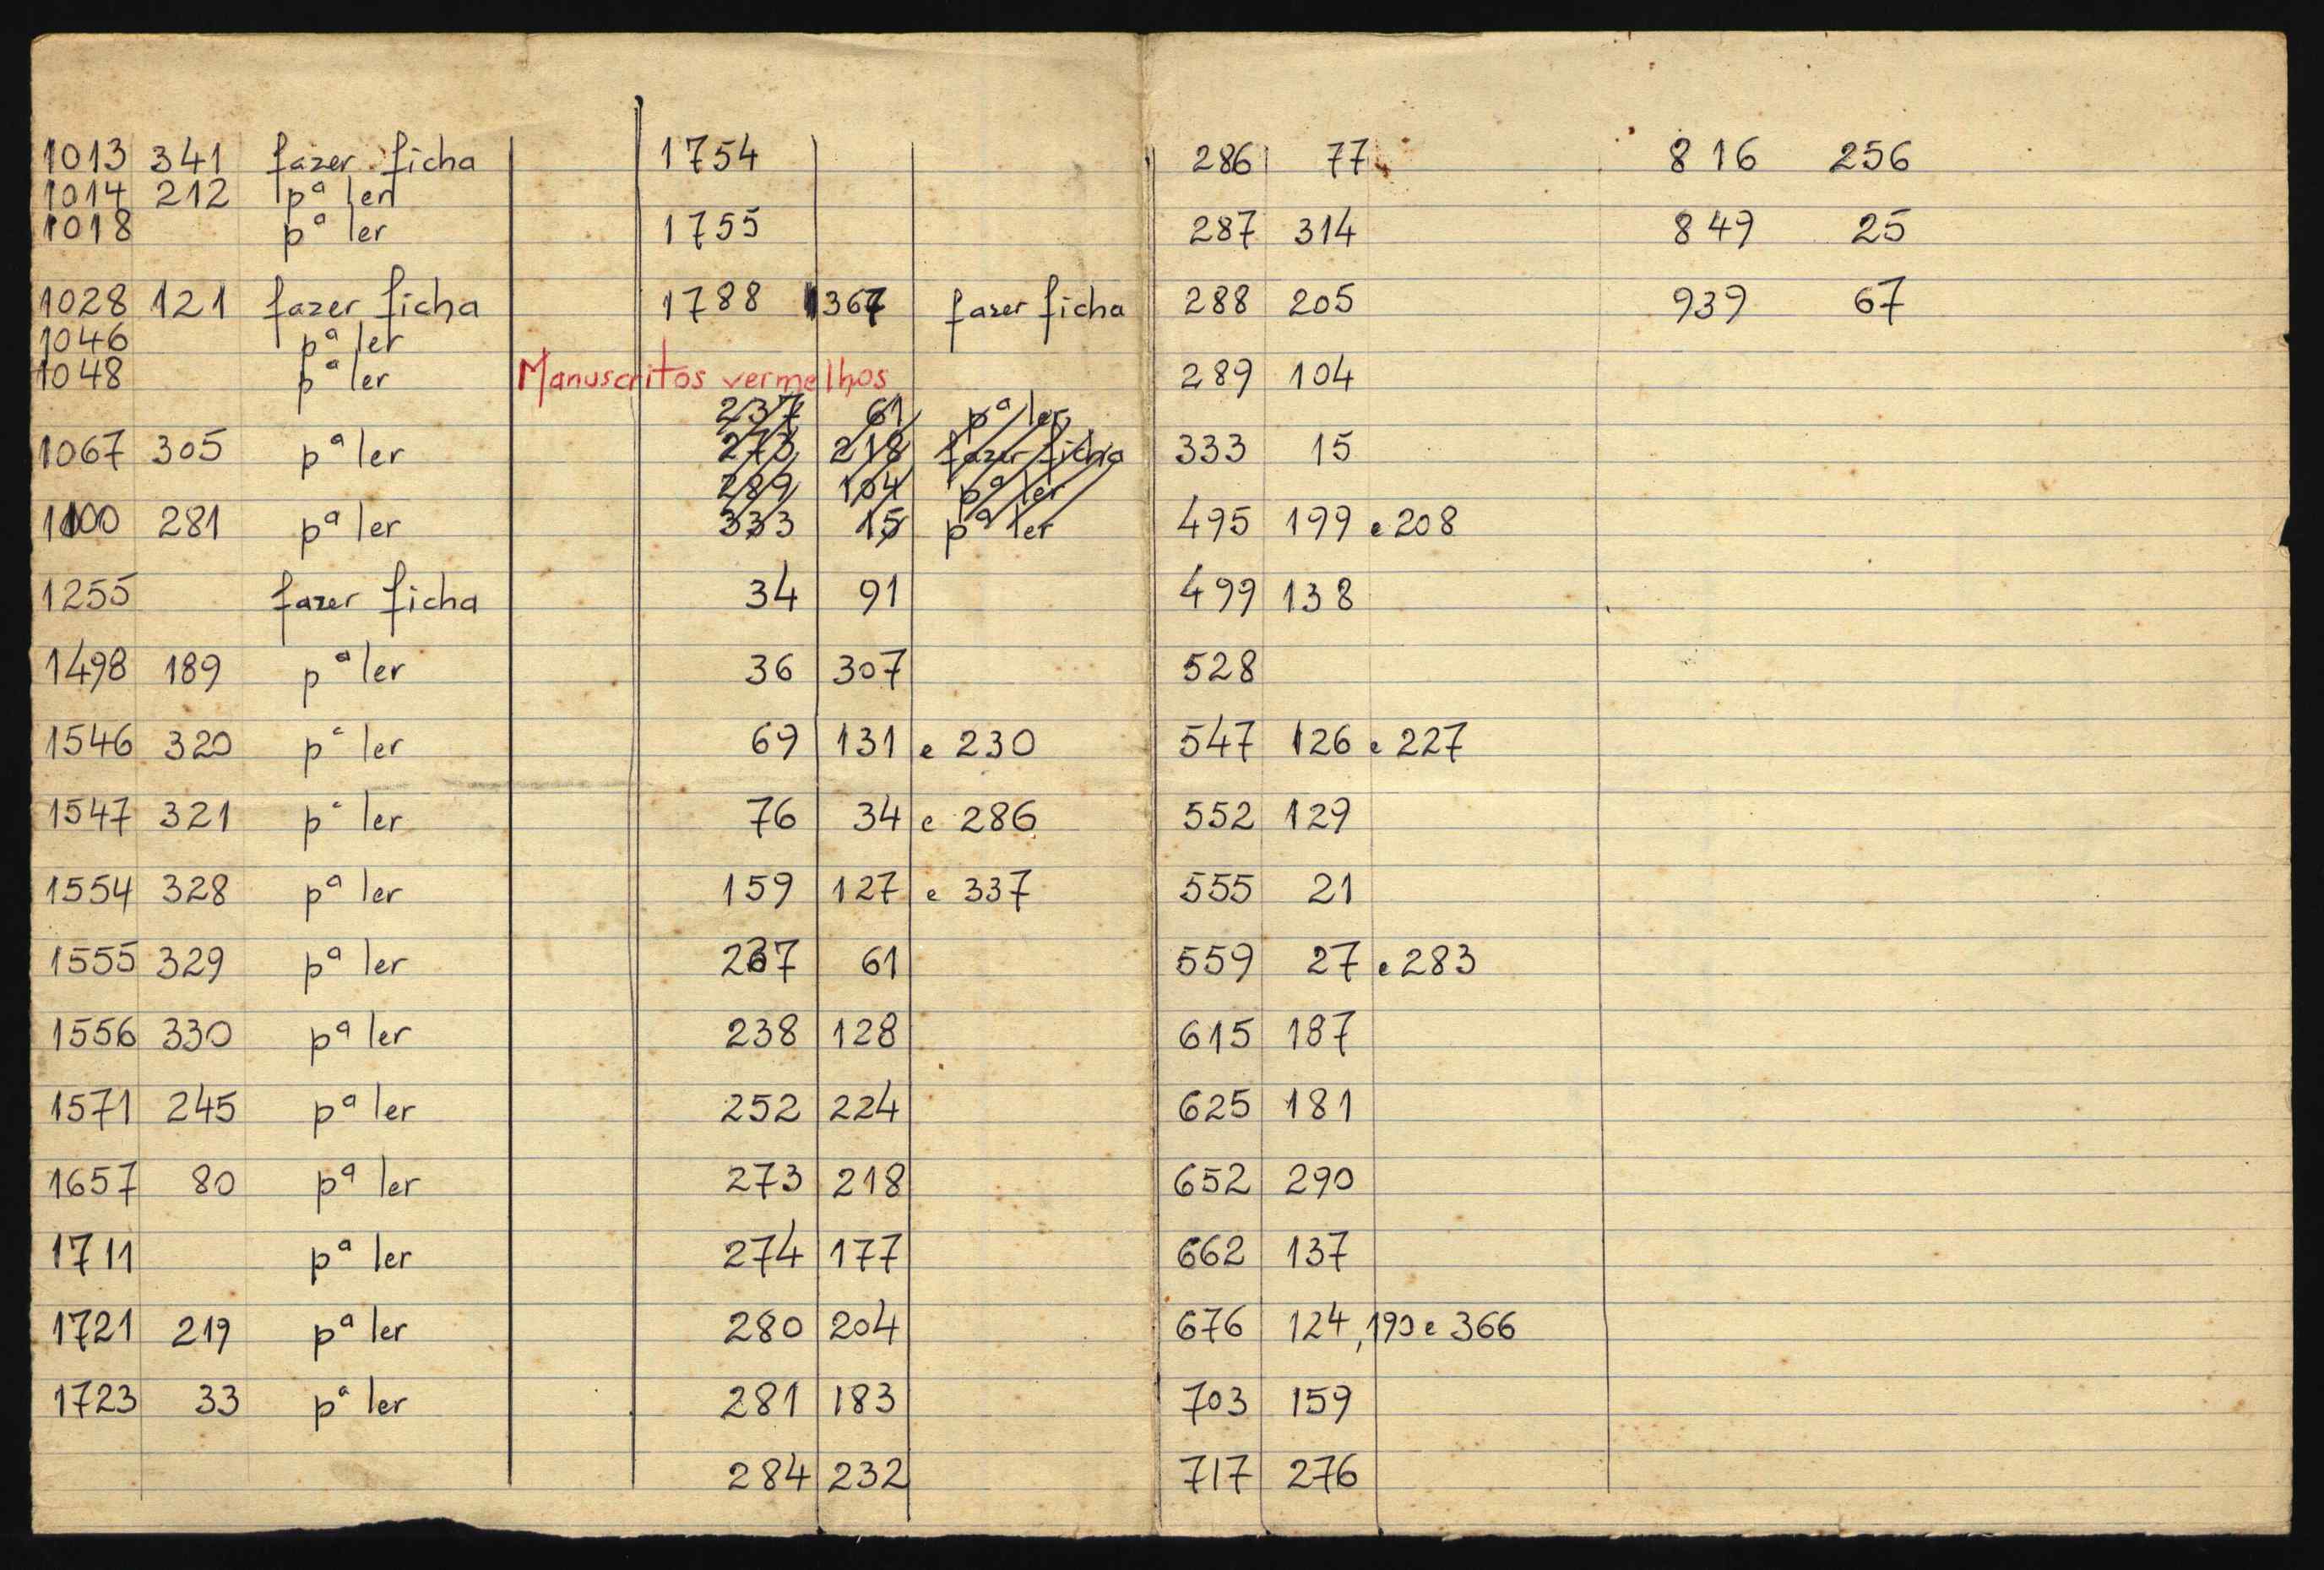 1013 341 fazer ficha
1014 212 pª ler
1018 pª ler
1028 121 fazer ficha
1046 pª ler
1048 pª ler
1067 305 pª ler
1100 281 pª ler
1255 fazer ficha
1498 189 pª ler
1546 320 pª ler
1547 321 pª ler
1554 328 pª ler
1555 329 pª ler
1556 330 pª ler
1571 245 pª ler
1657 80 pª ler
1711 pª ler
1721 219 pª ler
1723 33 pª ler
1754
1755
1788 367 fazer ficha
Manuscritos vermelhos
237 61 pª ler
273 218 fazer ficha
289 104 pª ler
333 15 pª ler
34 91
36 307
69 131 e 230
76 34 e 286
159 127 e 337
237 61
238 128
252 224
273 218
274 177
280 204
281 183
284 232
286 77
287 314
288 205
289 104
333 15
495 199 e 208
499 138
528
547 126 e 227
552 129
555 21
559 27 e 283
615 187
625 181
652 290
662 137
676 124, 190 e 366
703 159
717 276
816 256
849 25
939 67